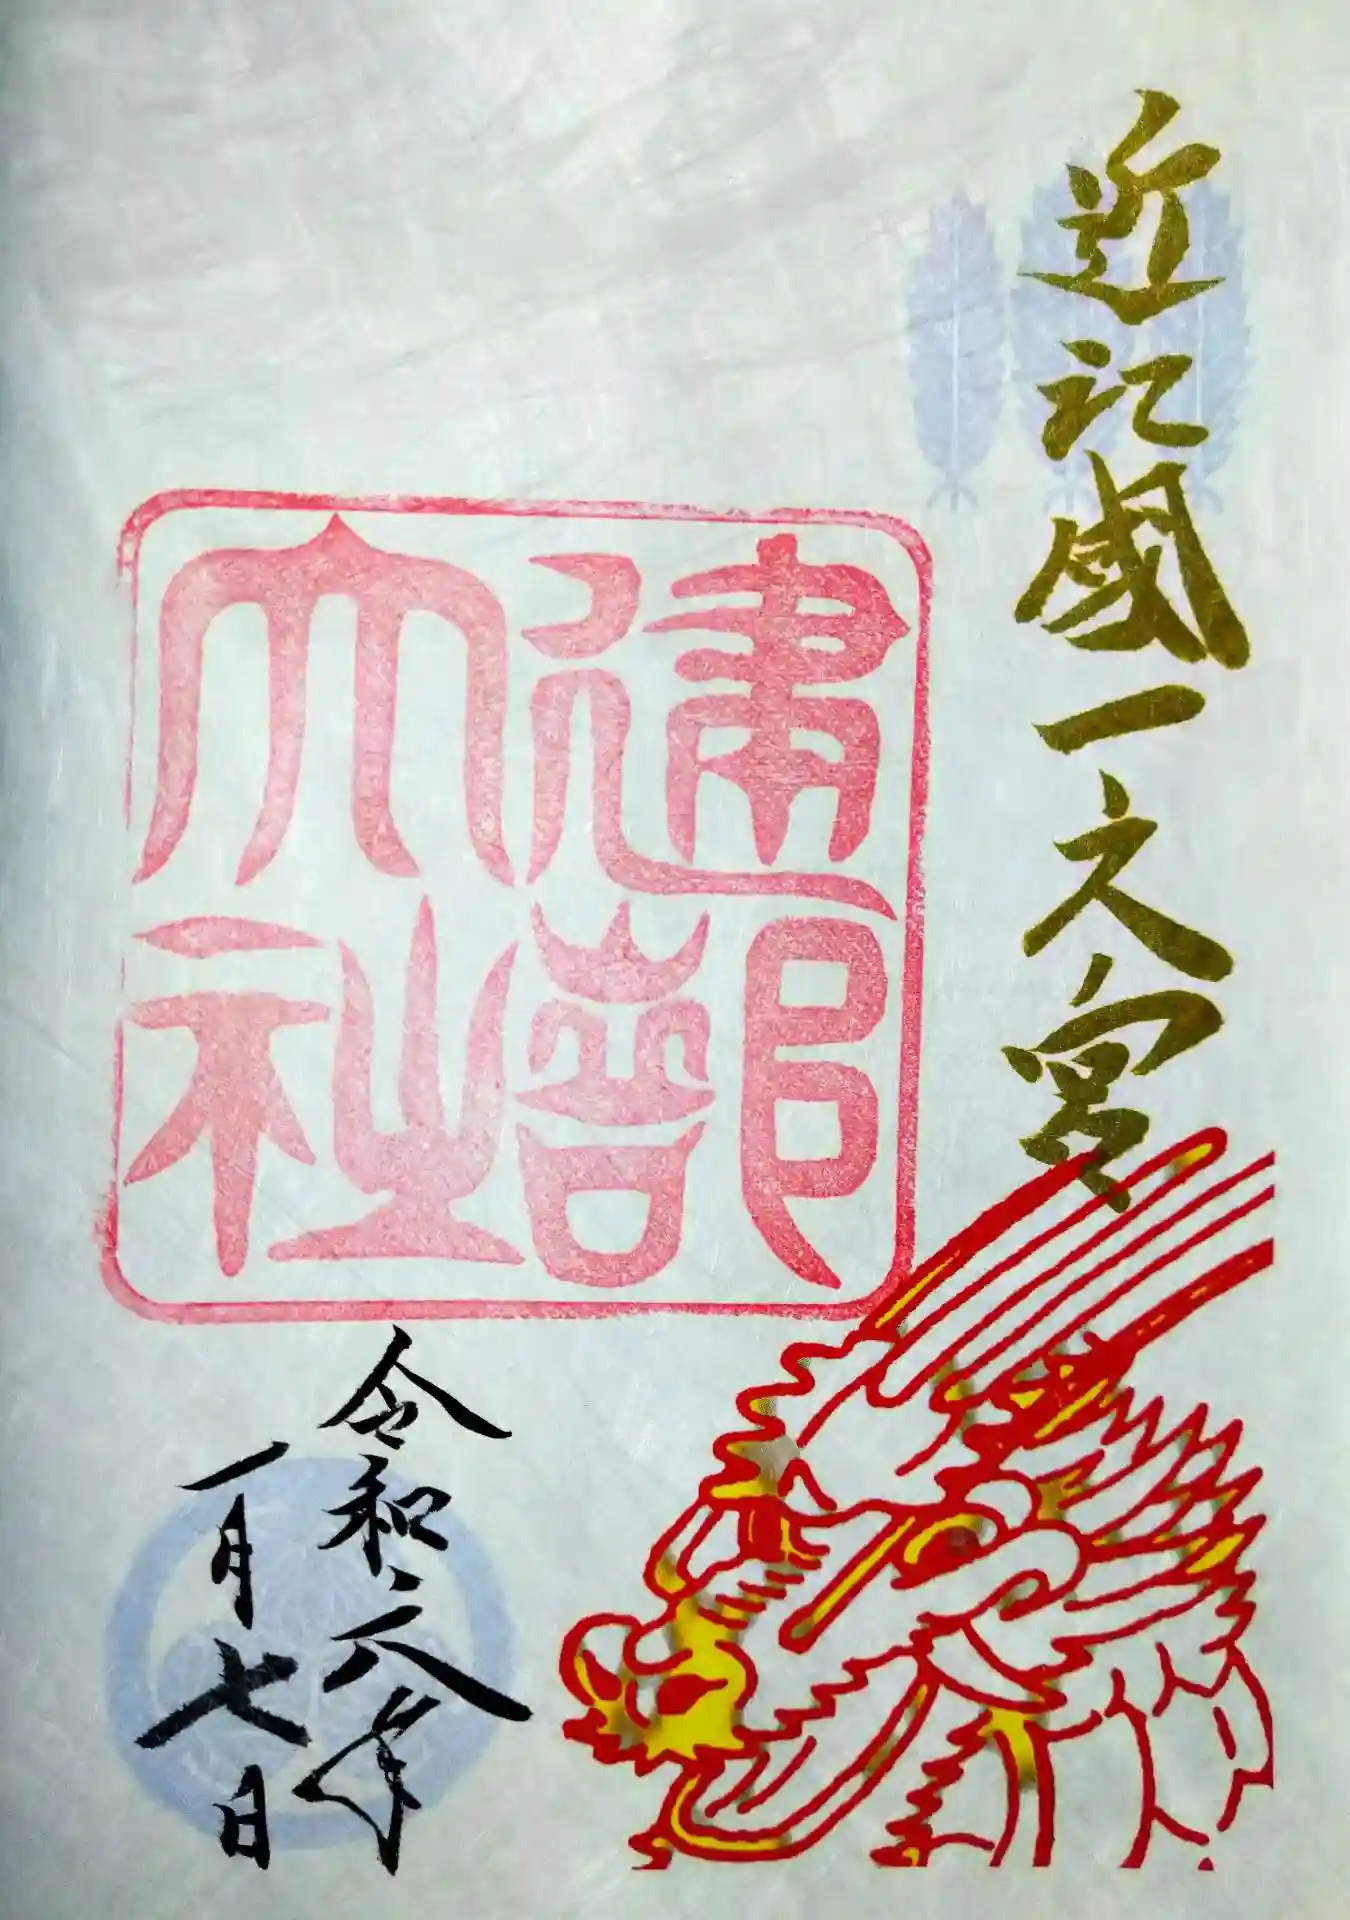 近江國一之宮
建部大社
令和六年
一月七日